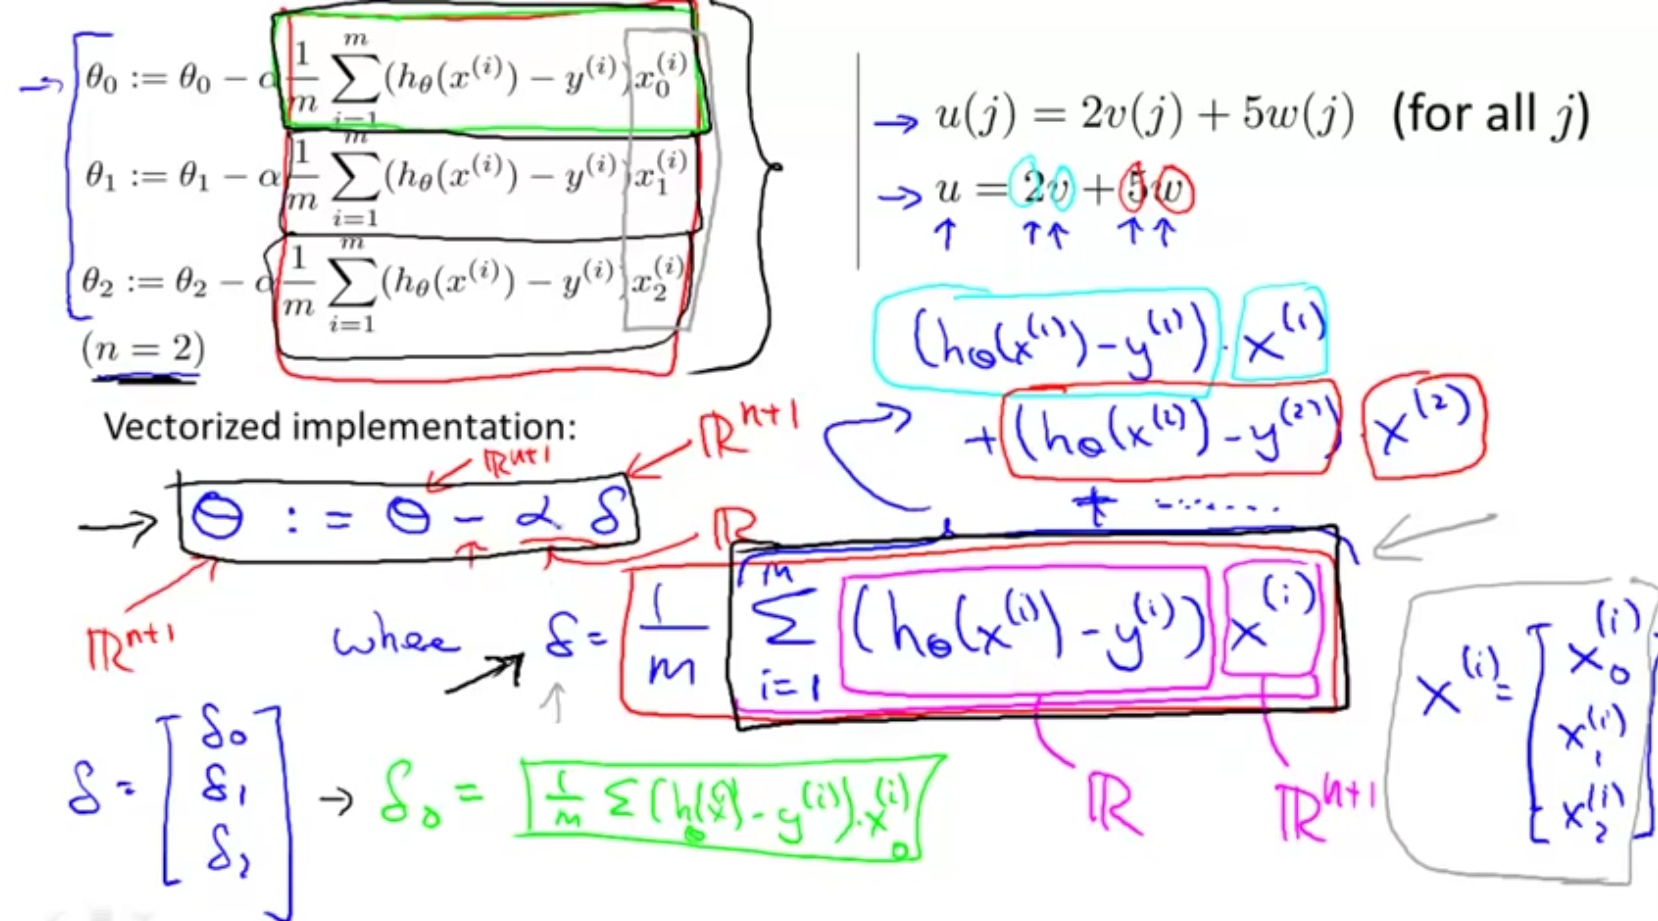 θ₀ := θ₀ − α 1/m ∑_{i=1}^{m} (h_θ(x^{(i)}) − y^{(i)}) x₀^{(i)}
θ₁ := θ₁ − α 1/m ∑_{i=1}^{m} (h_θ(x^{(i)}) − y^{(i)}) x₁^{(i)}
θ₂ := θ₂ − α 1/m ∑_{i=1}^{m} (h_θ(x^{(i)}) − y^{(i)}) x₂^{(i)}
(n = 2)
→ u(j) = 2v(j) + 5w(j) (for all j)
→ u = 2v + 5w
↑ ↑↑ ↑ ↑
(h_θ(x^{(1)}) − y^{(1)}) · x^{(1)}
+ (h_θ(x^{(2)}) − y^{(2)}) x^{(2)}
+ .......
Vectorized implementation:
ℝ^{n+1}
ℝ^{n+1}
→ θ := θ − α δ
ℝ
ℝ^{n+1}
where δ = 1/m ∑_{i=1}^{m} (h_θ(x^{(i)}) − y^{(i)}) x^{(i)}
ℝ
ℝ^{n+1}
x^{(i)} = [x₀^{(i)}
x₁^{(i)}
x₂^{(i)}]
δ = [δ₀
δ₁
δ₂]
→ δ₀ = 1/m ∑ (h_θ(x^{(i)}) − y^{(i)}) · x₀^{(i)}